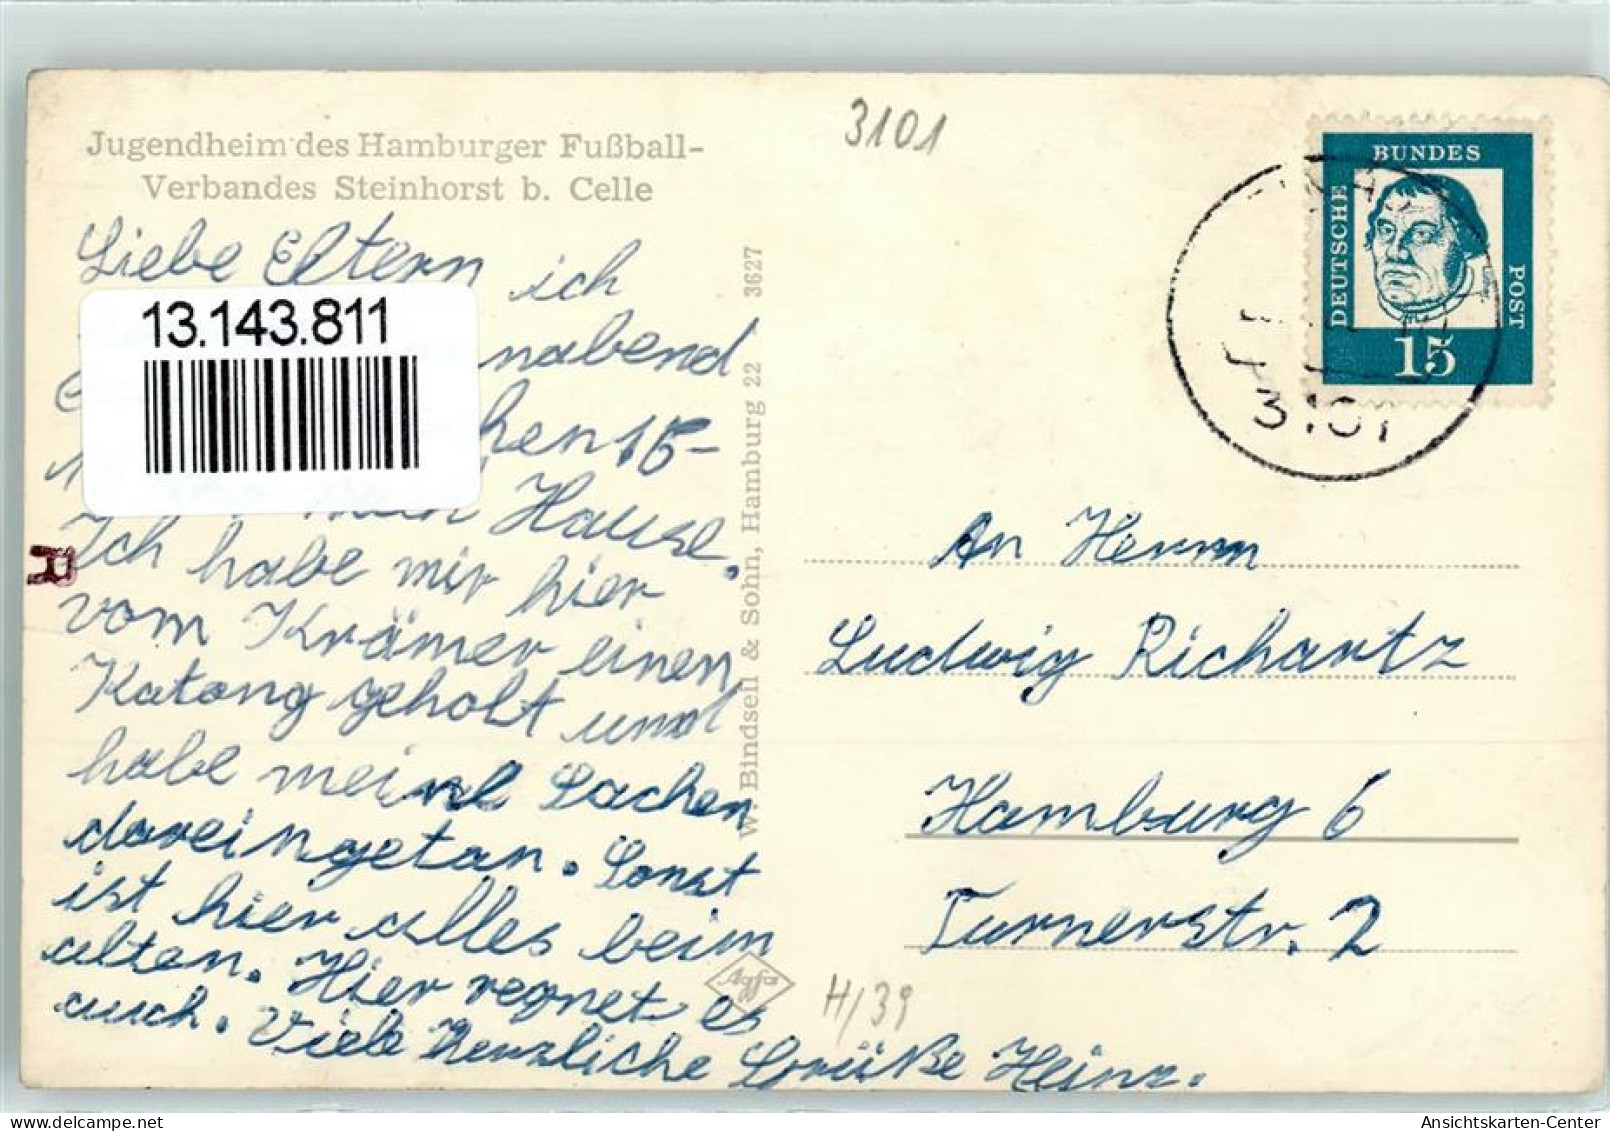 Jugendheim des Hamburger Fußball-
Verbandes Steinhorst b. Celle
3101
Liebe Eltern ich
13.143.811
nabend
hen 15-
Hause.
Ich habe mir hier
vom Krämer einen
Katong geholt und
habe meine Sachen
doreingetan. Sonst
ist hier alles beim
alten. Hier regnet es
auch. Viele Herzliche Grüße Heinz.
W. Bindseil & Sohn, Hamburg 22 3627
Agfa
H/39
DEUTSCHE
BUNDES
POST
15
3101
An Herrn
Ludwig Richartz
Hamburg 6
Turnerstr. 2
Ansichtskarten-Center